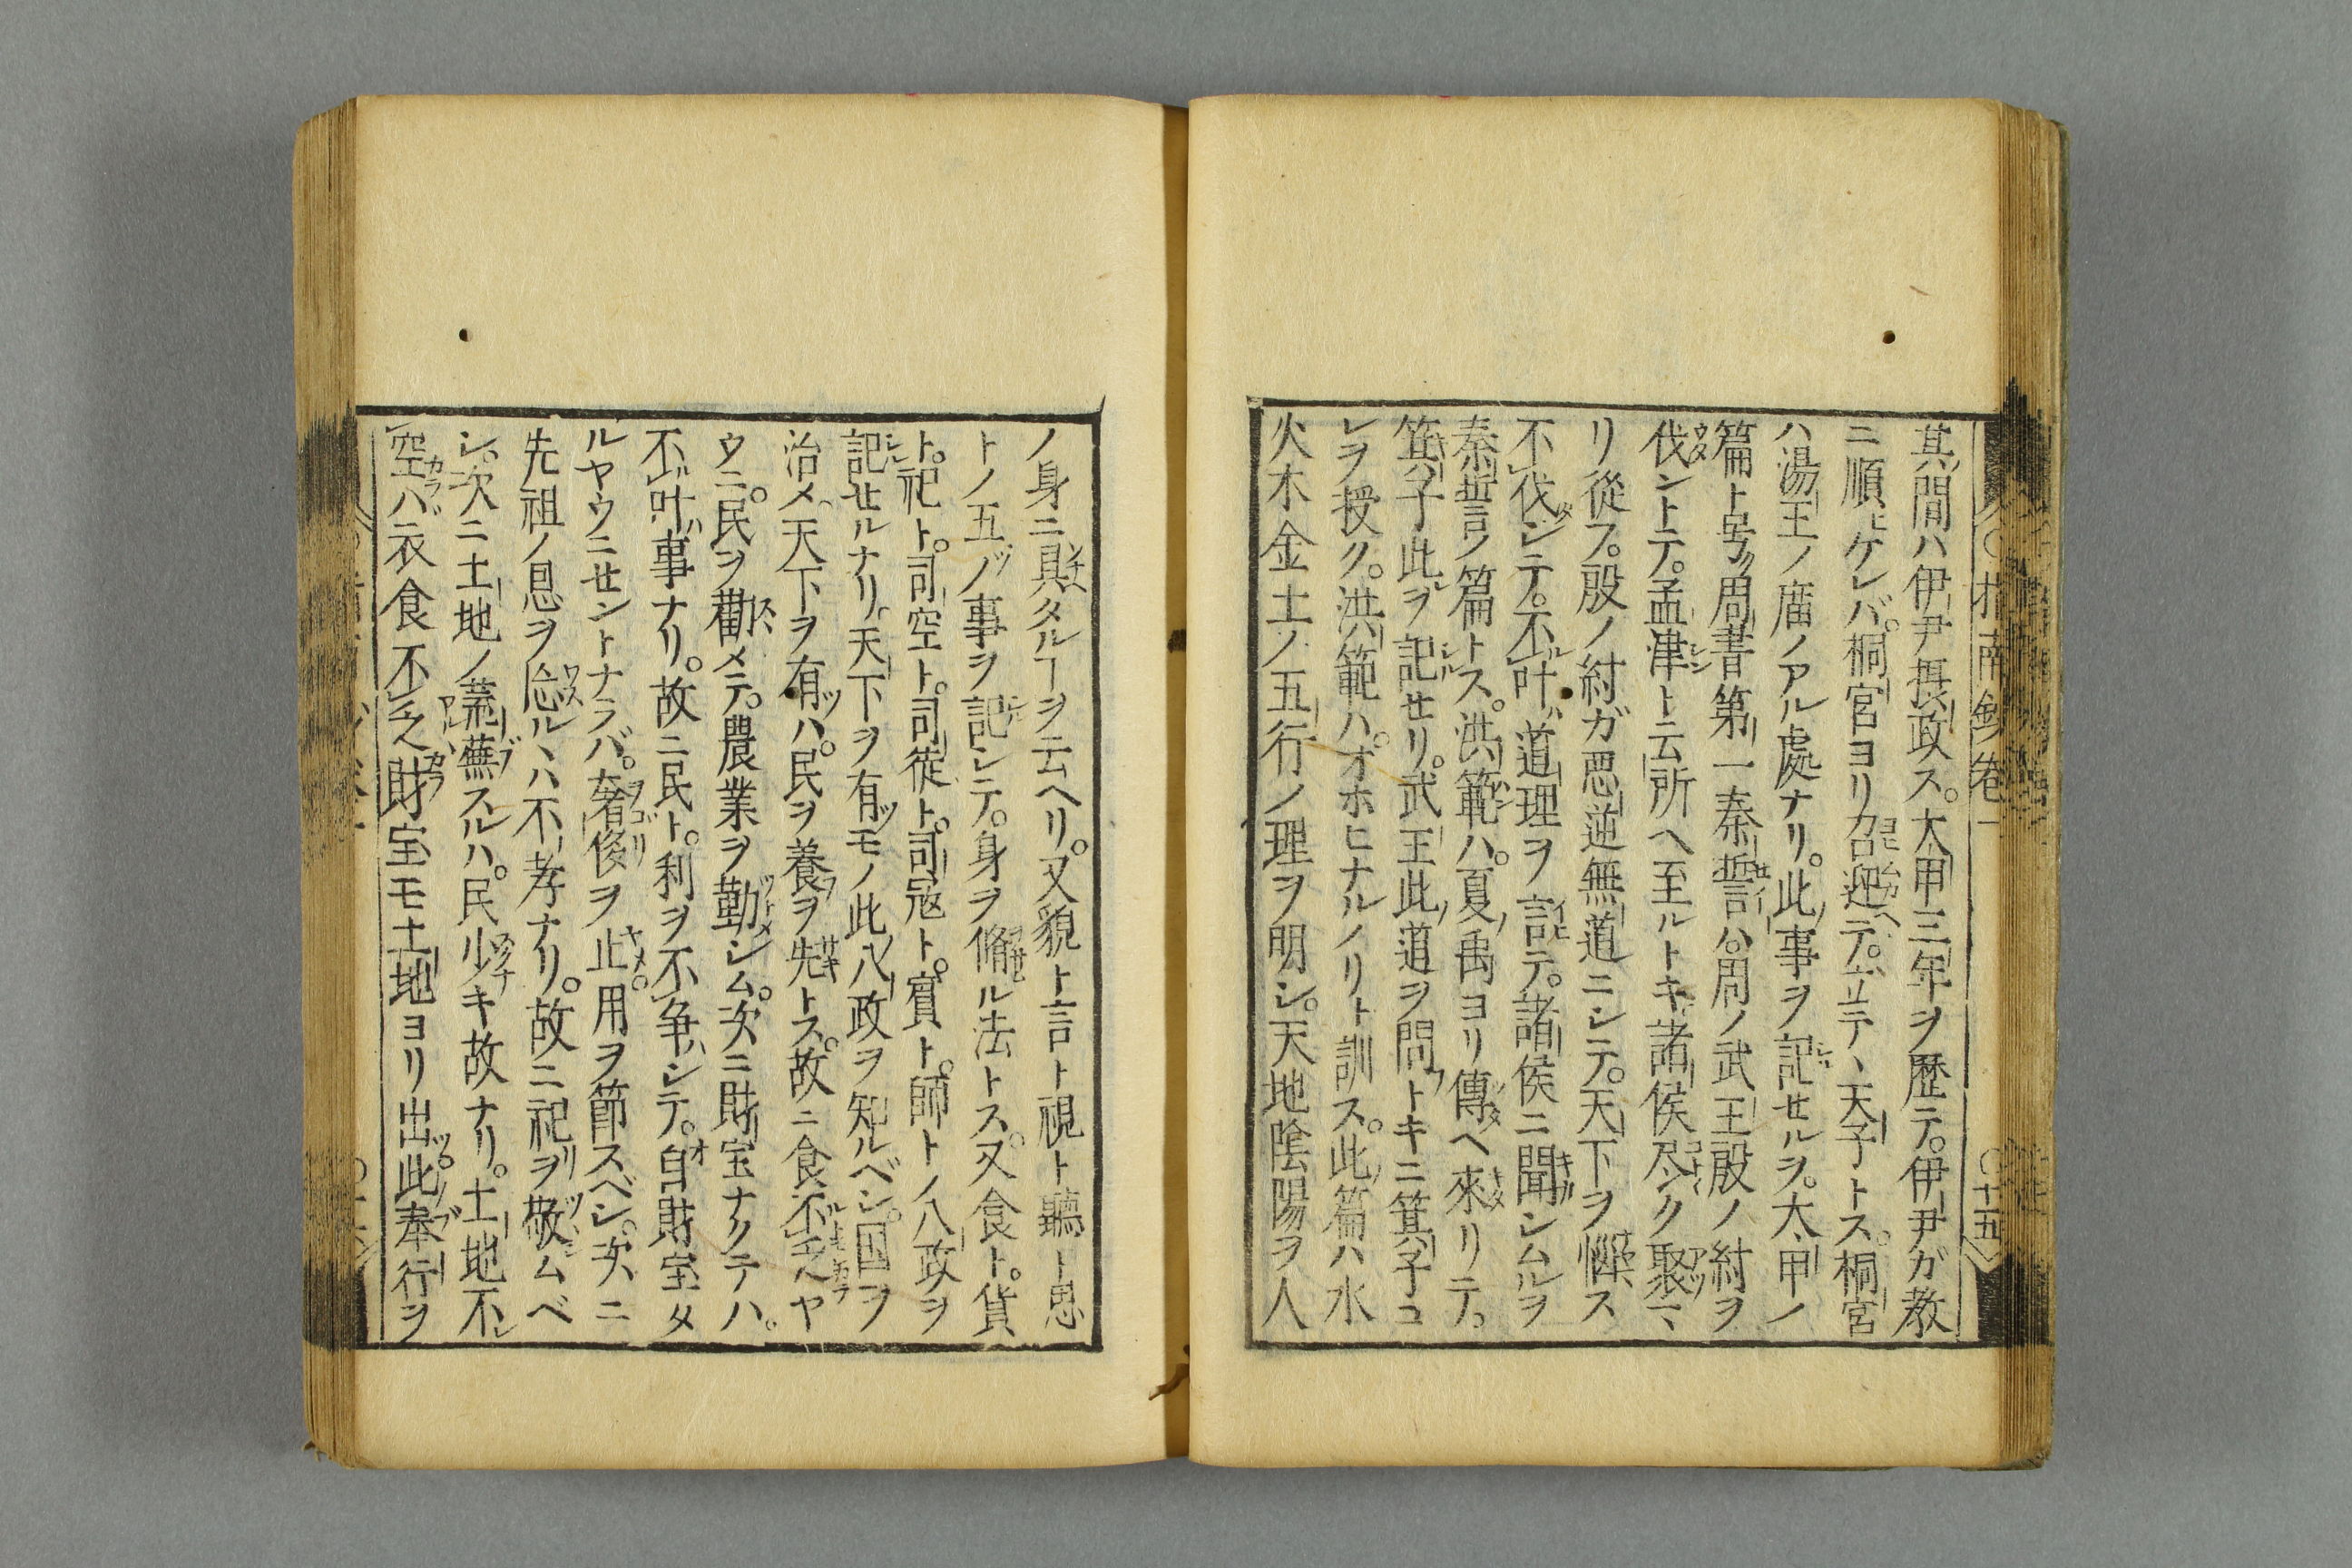 指南鈔卷一 ○十五
其間ハ伊尹摂政ス。太甲三年ヲ歴テ。伊尹ガ教
ニ順ヒケレバ。桐宮ヨリ召迎テ。立テヽ天子トス。桐宮
ハ湯王ノ庿ノアル處ナリ。此事ヲ記セルヲ。太甲ノ
篇ト号ク。周書第一秦誓ハ。周ノ武王殷ノ紂ヲ
伐ントテ。孟津ト云所ヘ至ルトキ。諸侯尽ク聚マ
リ從フ。殷ノ紂ガ悪逆無道ニシテ。天下ヲ惱ス
不伐シテ。不叶道理ヲ言テ。諸侯ニ聞シムルヲ
秦誓ノ篇トス。洪範ハ。夏禹ヨリ傳ヘ來リテ。
箕子此ヲ記セリ。武王此道ヲ問トキニ箕子コ
レヲ授ク。洪範ハ。オホヒナルノリト訓ス。此篇ハ水
火木金土ノ五行ノ理ヲ明シ。天地陰陽ヲ人
ノ身ニ具タルヿヲ云ヘリ。又貌ト言ト視ト聽ト思
トノ五ノ事ヲ記シテ。身ヲ脩ル法トス。又食ト。貨
ト。祀ト。司空ト。司徒ト。司冦ト。賓ト。師トノ八政ヲ
記セルナリ。天下ヲ有モノ此八政ヲ知ルベシ。国ヲ
治メ天下ヲ有ハ。民ヲ養ヲ先トス。故ニ食不乏ヤ
ウニ。民ヲ勸メテ。農業ヲ勤シム。次ニ財宝ナクテハ。
不叶事ナリ。故ニ民ト。利ヲ不争シテ。自財宝タ
ルヤウニセントナラバ。奢侈ヲ止用ヲ節スベシ。次ニ
先祖ノ恩ヲ忘ルヽハ不孝ナリ。故ニ祀ヲ敬ムベ
シ。次ニ土地ノ荒蕪スルハ。民少キ故ナリ。土地不
空ハ衣食不乏財宝モ土地ヨリ出此奉行ヲ